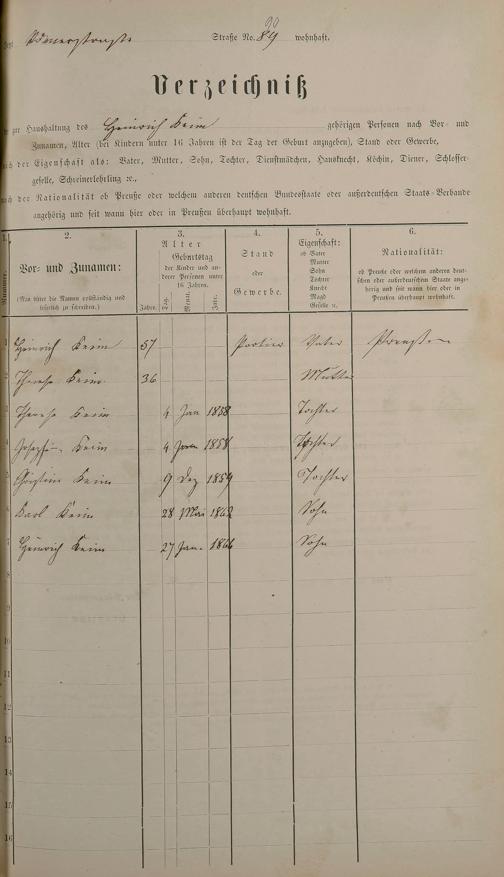 90
Straße No. 89 wohnhaft.
Verzeichniß
zur Haushaltung des Heinrich Keim gehörigen Personen nach Vor- und
Zunamen, Alter (bei Kindern unter 16 Jahren ist der Tag der Geburt anzugeben), Stand oder Gewerbe,
nach der Eigenschaft als: Vater, Mutter, Sohn, Tochter, Dienstmädchen, Hausknecht, Köchin, Diener, Schlosser-
geselle, Schreinerlehrling ꝛc.,
nach der Nationalität ob Preuße oder welchem anderen deutschen Bundesstaate oder außerdeutschen Staats-Verbande
angehörig und seit wann hier oder in Preußen überhaupt wohnhaft.
1. 2. 3. 4. 5. 6.
Nummer.
Vor- und Zunamen:
(Man bittet die Namen vollständig und
leserlich zu schreiben.)
Alter
Geburtstag
der Kinder und an-
derer Personen unter
16 Jahren.
Jahre. Tag. Monat. Jahr.
Stand
oder
Gewerbe.
Eigenschaft:
ob Vater
Mutter
Sohn
Tochter
Knecht
Magd
Geselle ꝛc.
Nationalität:
ob Preuße oder welchem anderen deut-
schen oder außerdeutschen Staate ange-
hörig und seit wann hier oder in
Preußen überhaupt wohnhaft.
1 Heinrich Keim 57 Portier Vater Preuße
2 Therese Keim 36 Mutter
3 Therese Keim 4 Jan 1858 Tochter
4 Keim 4 Jan 1858 Tochter
5 Christine Keim 9 Dez 1859 Tochter
6 Karl Keim 28 Mai 1862 Sohn
7 Heinrich Keim 27 Jan. 1866 Sohn
8
9
10
11
12
13
14
15
16